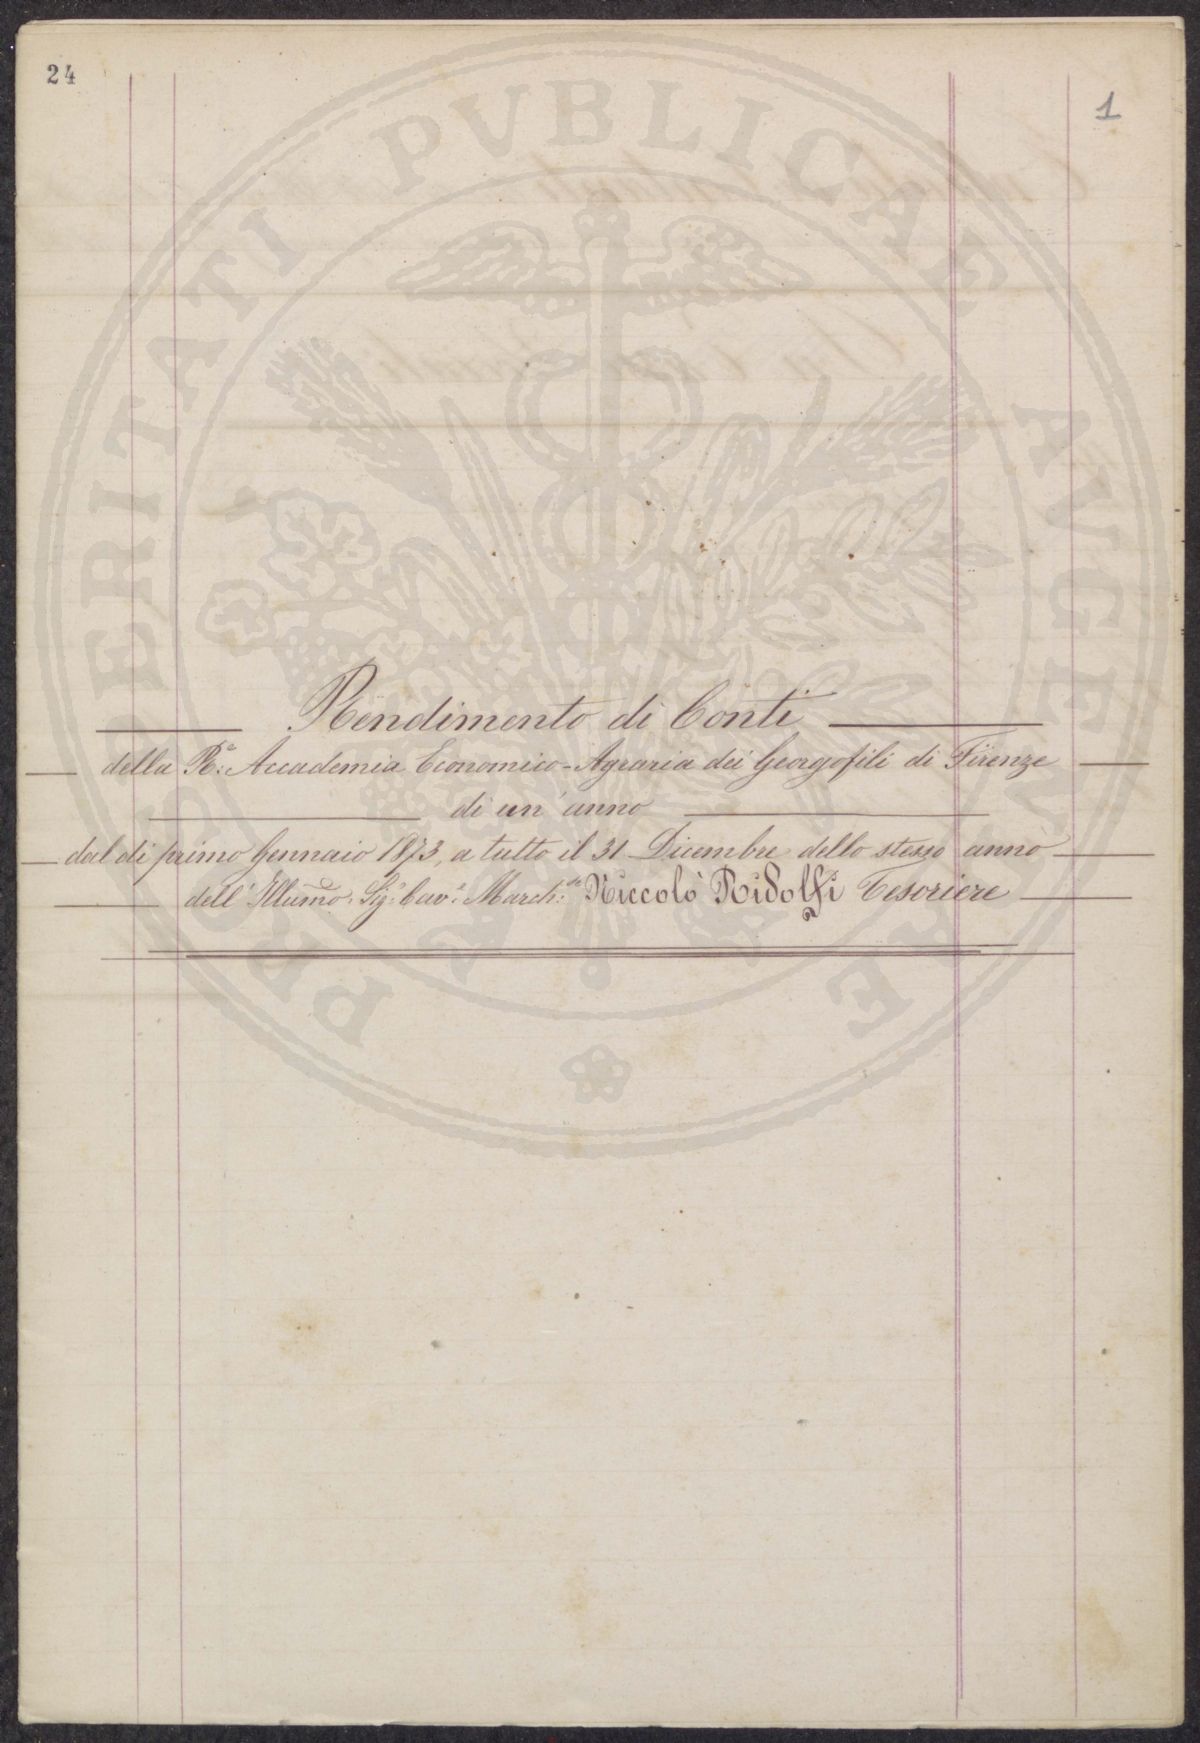 24
1
PROSPERITATI PVBLICAE AVGENDAE
Rendimento di Conti
della Rª: Accademia Economico-Agraria dei Georgofili di Firenze
di un' anno
dal dì primo Gennaio 1873, a tutto il 31 Dicembre dello stesso anno
dell' Illumo: Sigr: Cavr: March:se Niccolò Ridolfi Tesoriere